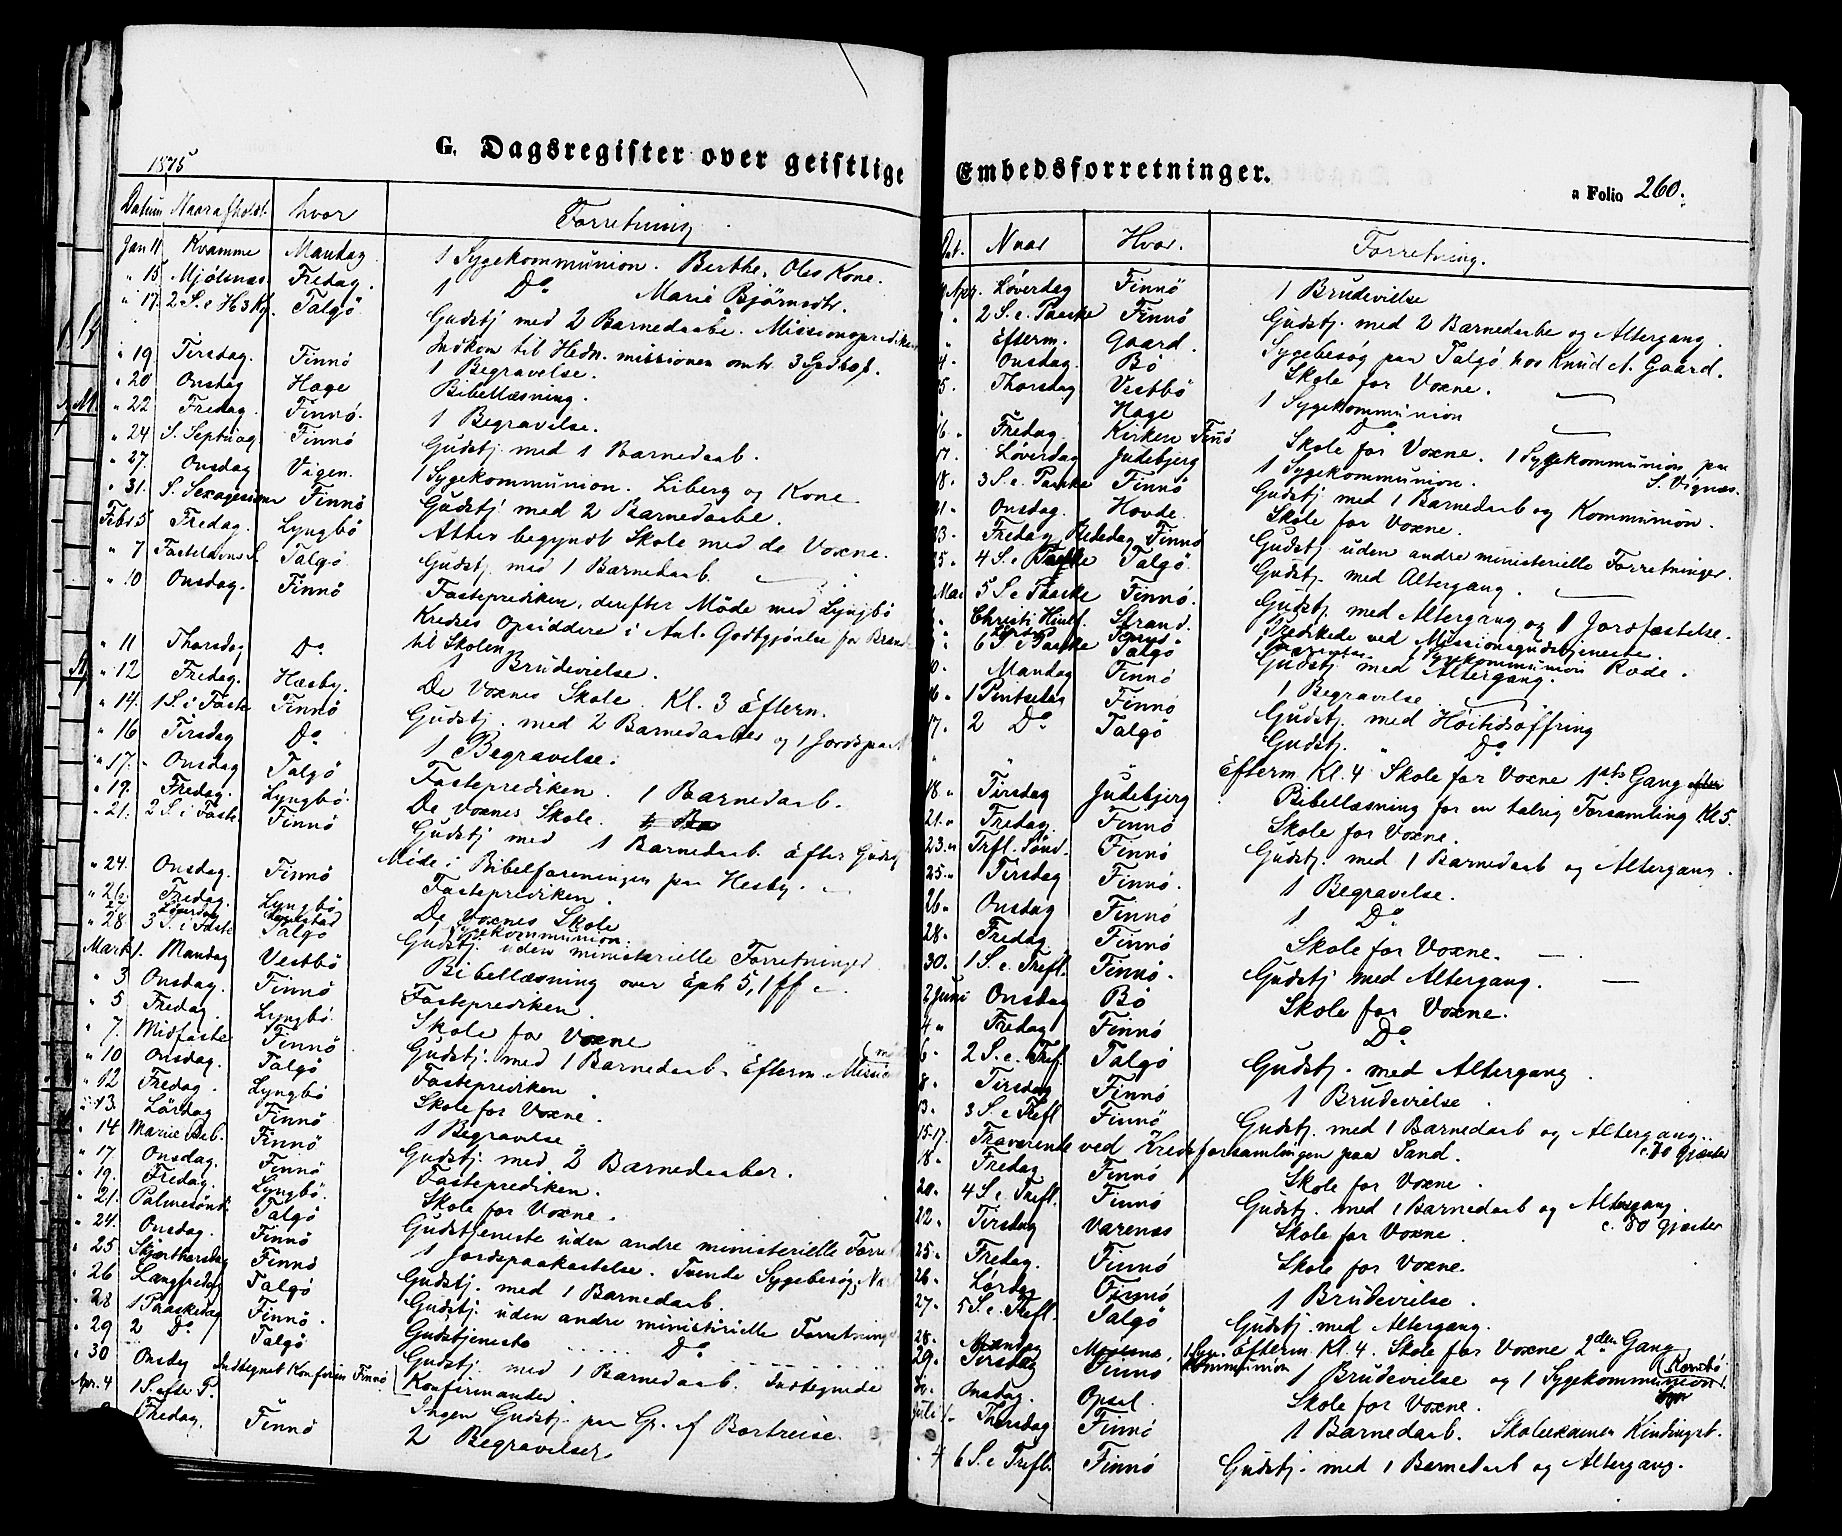 1875
G. Dagsregister over geistlige
Datum Naar afholdt. hvor Forretning
Jan 11 Kvamme Mandag 1 Sygekommunion. Berthe, Oles Kone.
" 15 Mjølsnæs Fredag. 1 Do Marie Bjørnsdtr.
" 17. 2 S. e H3K. Talgø Gudstj med 2 Barnedaabe. Missionsprediken
Indkom til Hedn. missionen omtr. 3
" 19 Tirsdag. Finnø 1 Begravelse.
" 20 Onsdag Hage Bibellæsning.
" 22 Fredag. Finnø. 1 Begravelse.
" 24 S. Septuag Finnø Gudstj med 1 Barnedaab.
" 27. Onsdag Vigen. 1 Sygekommunion. Liberg og Kone.
" 31. S. Sexagesima Finnø Gudstj med 2 Barnedaabe.
Febr 5 Fredag. Lyngbø Atter begyndt Skole med de Voxne.
" 7 Fastelavns S. Talgø Gudstj med 1 Barnedaab.
" 10 Onsdag. Finnø Fasteprediken, derefter Möde med Lyngbø
Kredses Opsiddere i Anl. Godtgjørelse for Brænde
til Skolen
" 11 Thorsdag Do 1 Brudevielse.
" 12 Fredag. Hæsby. De Voxnes Skole Kl. 3 Eftern.
" 14. 1 S. i Faste Finnø Gudstj. med 2 Barnedaabe og 1 Jordspaak
" 16 Tirsdag Do 1 Begravelse.
" 17. Onsdag Talgø Fasteprediken. 1 Barnedaab.
" 19. Fredag. Lyngbø. De Voxnes Skole.
" 21. 2 S. i Faste Finnø Gudstj med 1 Barnedaab Efter Gudstj
Möde i Bibelforeningen paa Hesby.
" 24. Onsdag. Finnø Fasteprediken.
" 26. Fredag. Lyngbø De Voxnes Skole
27 Løverdag Sygekommunion.
" 28 3 S. i Faste Talgø Gudstj. uden ministerielle Forretninger
Marts 1. Mandag Vestbø Bibellæsning over Eph 5, 1 ff
" 3 Onsdag. Finnø Fasteprediken.
" 5 Fredag. Lyngbø. Skole for Voxne
" 7. Midfaste Finnø Gudstj. med 1 Barnedaab. Efterm. Mission
" 10 Onsdag. Talgø Fasteprediken.
" 12 Fredag. Lyngbø Skole for Voxne.
" 13. Lördag Finnø 1 Begravelse.
" 14 Mariæ Beb. Finnø Gudstj. med 2 Barnedaaber.
" 17 Onsdag. Finnø Fasteprediken.
" 19. Fredag. Lyngbø. Skole for Voxne.
" 21. Palmesönd. Talgø Gudstjeneste uden andre ministerielle Forret
" 24. Onsdag. Finnø 1 Jordspaakastelse. Tvende Sygebesøg,
" 25 Skjærthorsdag Finnø Gudstj. med 1 Barnedaab.
" 26 Langfredag Talgø Gudstj. uden andre ministerielle Forretninger
" 28 1 Paaskedag Finnø. Gudstjeneste Do
" 29 2 Do Talgø Gudstj. med 1 Barnedaab. Indtegnede
" 30 Onsdag Indtegnet Konfirm Finnø Konfirmander.
Apr. 4 1 S. efte P. Ingen Gudstj. paa Gr. af Bortreise.
Fredag. Finnø 2 Begravelser
Embedsforretninger.
a Folio 260.
Dat. Naar Hvor. Forretning.
Apr. Løverdag Finnø 1 Brudevielse
2 S. e. Paaske Finnø Gudstj. med 2 Barnedaabe og Altergang.
" Efterm. Gaard. Sygebesøg paa Talgø hos Knud A. Gaard.
Onsdag. Bø Skole for Voxne.
Thorsdag Vestbø 1 Sygekommunion
Hage Do
16 " Fredag. Kirken Finnø Skole for Voxne. 1 Sygekommunion paa
S. Vignæs.
17. Løverdag Judebjerg 1 Sygekommunion.
18. 3 S. e. Paaske Finnø Gudstj med 1 Barnedaab og Kommunion.
21. Onsdag. Hovde. Skole for Voxne.
23. Fredag Bededag Finnø Gudstj. uden andre ministerielle Forretninger.
25. 4 S. e Paaske Talgø. Gudstj. med Altergang.
Mai 5 S e Paaske Finnø. Gudstj. med Altergang og 1 Jordfæstelse.
Christi Himf. Strand. Prædikede ved Missionsgudstjeneste.
6 S e Paaske Talgø Gudstj med Altergang. Sygekommunion Rade.
Mandag Finnø 1 Begravelse
16. 1 Pintsedag Finnø Gudstj. med Høitidsoffring
17. 2 Do Talgø Gudstj. " Do
Efterm Kl. 4 Skole for Voxne 1ste Gang
18 " Tirsdag Judebjerg Bibellæsning for en talrig Forsamling Kl 5.
21. " Fredag. Finnø Skole for Voxne.
23. " Trft. Sönd. Finnø Gudstj. med 1 Barnedaab og Altergang.
25. " Tirsdag Finnø. 1 Begravelse.
26. Onsdag Finnø 1 Do
28. Fredag Finnø Skole for Voxne.
30. 1 S. e. Trefl. Finnø. Gudstj med Altergang.
2 Juni Onsdag Bø Skole for Voxne.
4 " Fredag Finnø Do
6. 2 S. e. Tref. Talgø Gudstj. med Altergang.
8. Tirsdag Finnø 1 Brudevielse.
13. 3 S. e Trefl Finnø Gudstj. med 1 Barnedaab og Altergang..
c. 70 Gjæster
15-17. Fraværende ved Kredsforsamlingen paa Sand.
18. Fredag Finnø Skole for Voxne.
20. 4 S. e Trefl. Finnø Gudstj. med 1 Barnedaab og Altergang.
c. 80 Gjæster
22. Tirsdag Varenæs Skole for Voxne.
25. Fredag. Finnø Skole for Voxne.
26. Lørdag Finnø 1 Brudevielse.
27. 5 S. e Trefl. Talgø Gudstj. med Altergang.
28. Mandag 1 Sygekommunion Efterm Kl. 4. Skole for Voxne 2den Gang
29. Tirsdag Finnø 1 Brudevielse og 1 Sygekommunion.
Onsdag. Opsal. Skole for Voxne.
Juli 1. Thorsdag Finnø 1 Barnedaab. Skoleexamen Kindingst.
4 6 S. e Trefl. Finnø Gudstj. med 1 Barnedaab og Altergang.